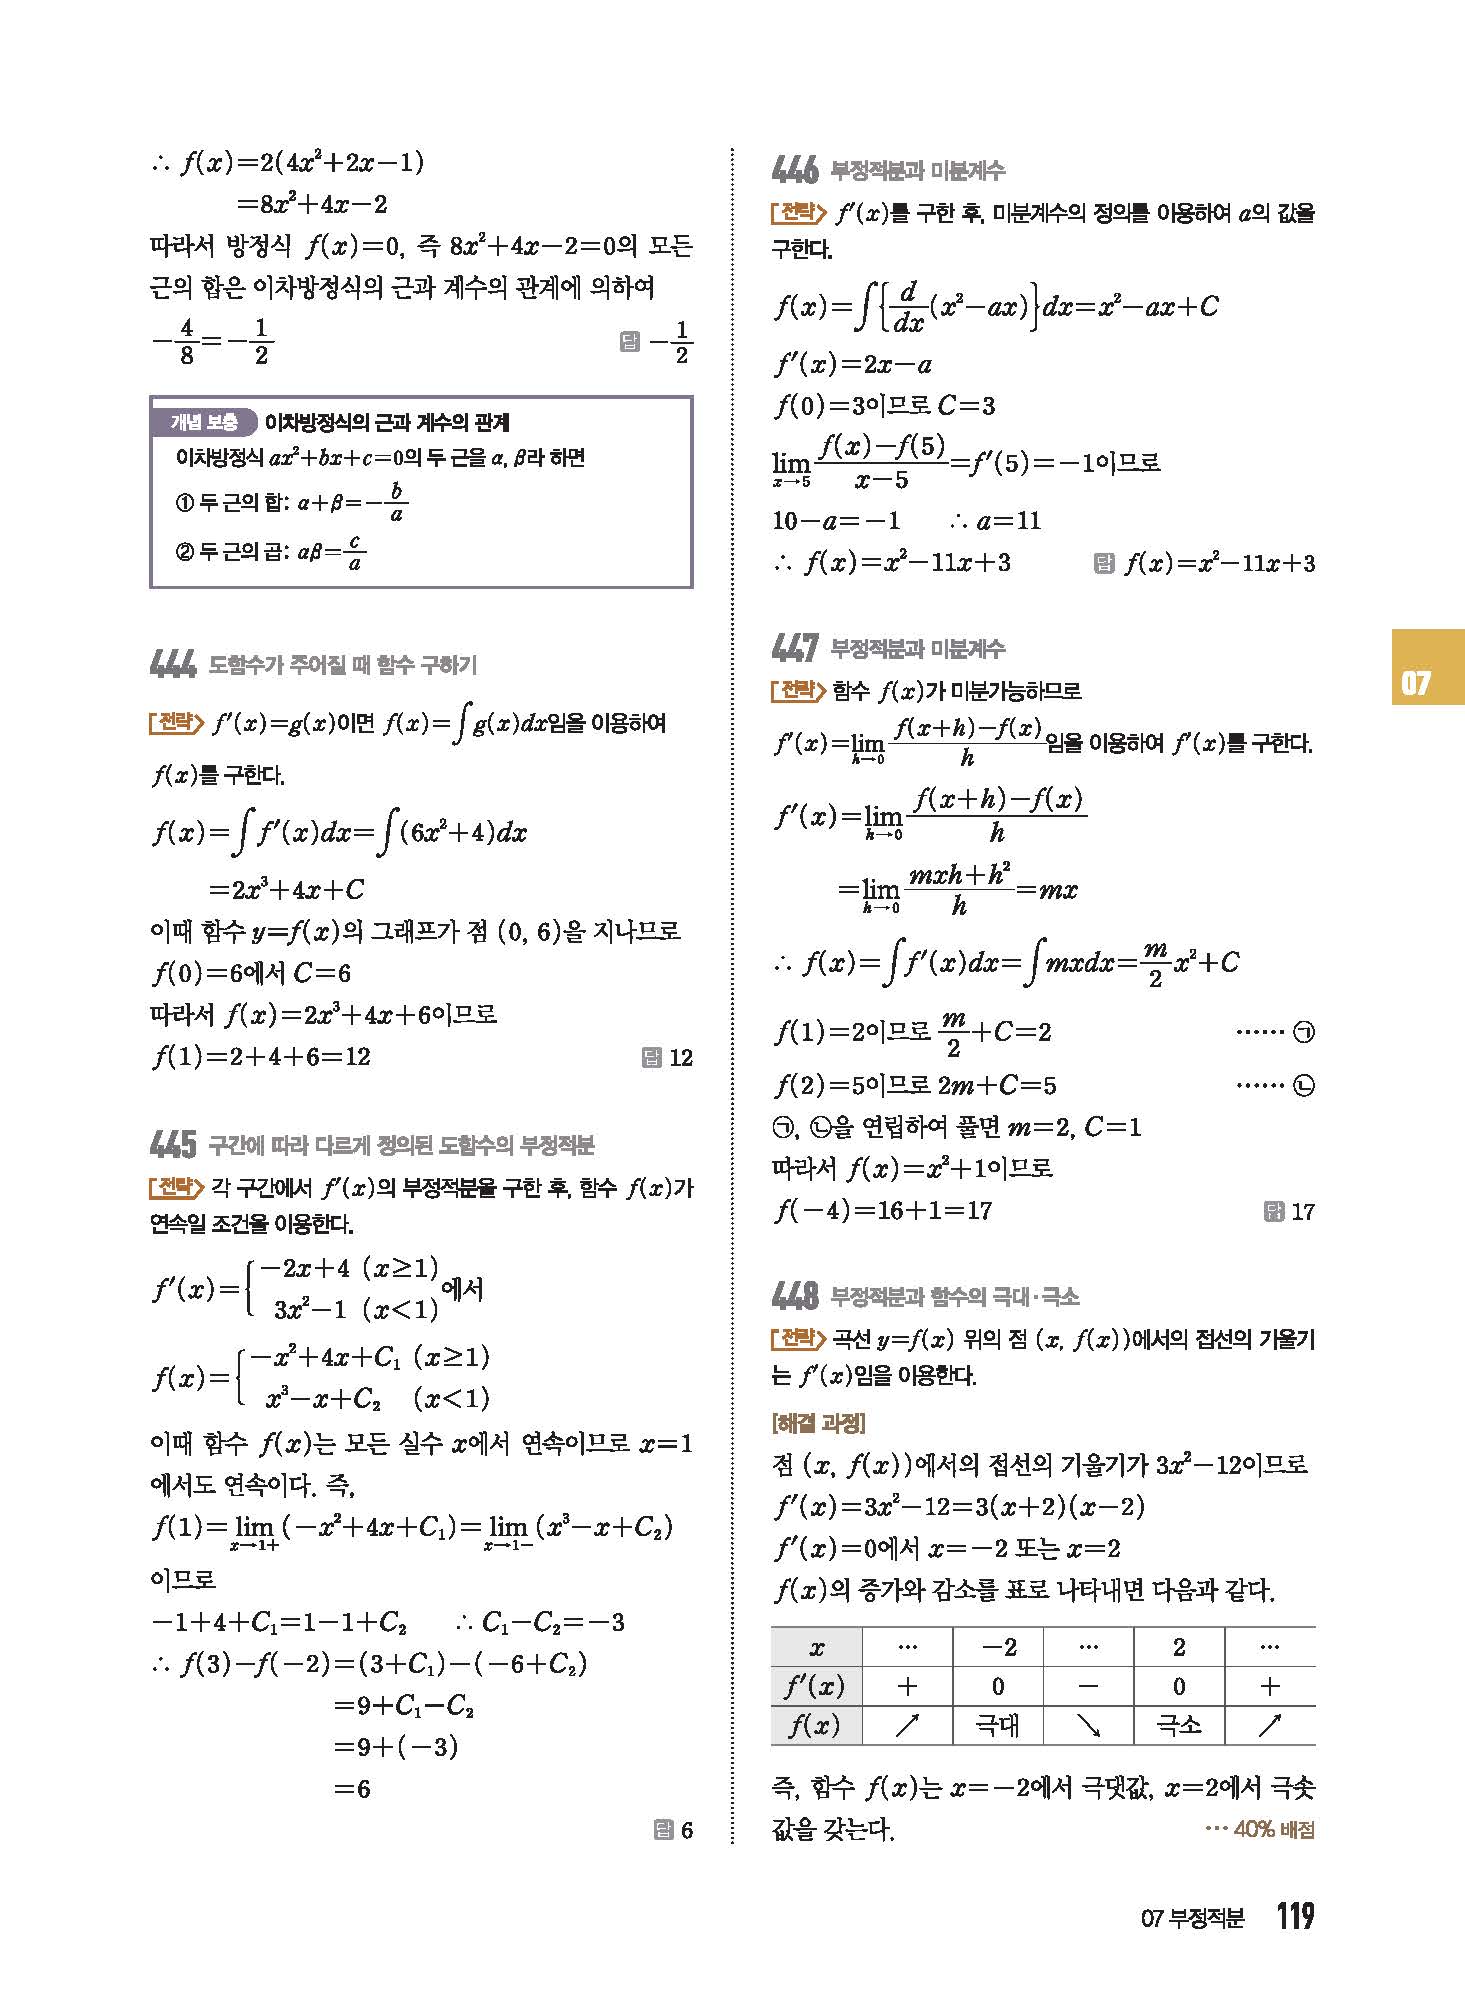 ∴ f(x)=2(4x²+2x-1)
=8x²+4x-2
따라서 방정식 f(x)=0, 즉 8x²+4x-2=0의 모든
근의 합은 이차방정식의 근과 계수의 관계에 의하여
-4/8=-1/2 답 -1/2
개념 보충 이차방정식의 근과 계수의 관계
이차방정식 ax²+bx+c=0의 두 근을 α, β라 하면
① 두 근의 합: α+β=-b/a
② 두 근의 곱: αβ=c/a
444 도함수가 주어질 때 함수 구하기
전략 f′(x)=g(x)이면 f(x)=∫g(x)dx임을 이용하여
f(x)를 구한다.
f(x)=∫f′(x)dx=∫(6x²+4)dx
=2x³+4x+C
이때 함수 y=f(x)의 그래프가 점 (0, 6)을 지나므로
f(0)=6에서 C=6
따라서 f(x)=2x³+4x+6이므로
f(1)=2+4+6=12 답 12
445 구간에 따라 다르게 정의된 도함수의 부정적분
전략 각 구간에서 f′(x)의 부정적분을 구한 후, 함수 f(x)가
연속일 조건을 이용한다.
f′(x)={-2x+4 (x≥1)
3x²-1 (x<1) 에서
f(x)={-x²+4x+C₁ (x≥1)
x³-x+C₂ (x<1)
이때 함수 f(x)는 모든 실수 x에서 연속이므로 x=1
에서도 연속이다. 즉,
f(1)=lim_{x→1+}(-x²+4x+C₁)=lim_{x→1-}(x³-x+C₂)
이므로
-1+4+C₁=1-1+C₂ ∴ C₁-C₂=-3
∴ f(3)-f(-2)=(3+C₁)-(-6+C₂)
=9+C₁-C₂
=9+(-3)
=6
답 6
446 부정적분과 미분계수
전략 f′(x)를 구한 후, 미분계수의 정의를 이용하여 a의 값을
구한다.
f(x)=∫{d/dx(x²-ax)}dx=x²-ax+C
f′(x)=2x-a
f(0)=3이므로 C=3
lim_{x→5} (f(x)-f(5))/(x-5)=f′(5)=-1이므로
10-a=-1 ∴ a=11
∴ f(x)=x²-11x+3 답 f(x)=x²-11x+3
447 부정적분과 미분계수
전략 함수 f(x)가 미분가능하므로
f′(x)=lim_{h→0} (f(x+h)-f(x))/h 임을 이용하여 f′(x)를 구한다.
f′(x)=lim_{h→0} (f(x+h)-f(x))/h
=lim_{h→0} (mxh+h²)/h=mx
∴ f(x)=∫f′(x)dx=∫mxdx=m/2 x²+C
f(1)=2이므로 m/2+C=2 …… ㉠
f(2)=5이므로 2m+C=5 …… ㉡
㉠, ㉡을 연립하여 풀면 m=2, C=1
따라서 f(x)=x²+1이므로
f(-4)=16+1=17 답 17
448 부정적분과 함수의 극대·극소
전략 곡선 y=f(x) 위의 점 (x, f(x))에서의 접선의 기울기
는 f′(x)임을 이용한다.
[해결 과정]
점 (x, f(x))에서의 접선의 기울기가 3x²-12이므로
f′(x)=3x²-12=3(x+2)(x-2)
f′(x)=0에서 x=-2 또는 x=2
f(x)의 증가와 감소를 표로 나타내면 다음과 같다.
x … -2 … 2 …
f′(x) + 0 - 0 +
f(x) ↗ 극대 ↘ 극소 ↗
즉, 함수 f(x)는 x=-2에서 극댓값, x=2에서 극솟
값을 갖는다. … 40% 배점
07
07 부정적분 119